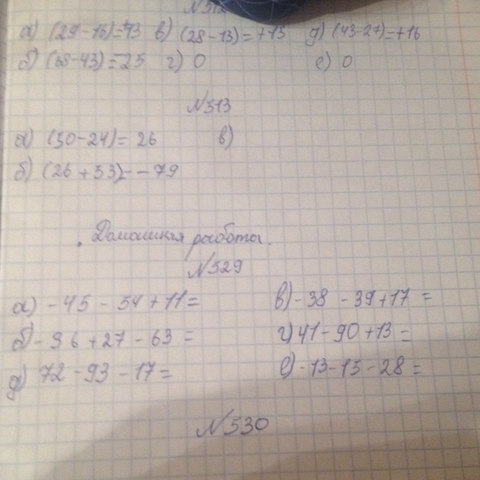 №512
а) (29-16)=13 в) (28-13)=+15 д) (43-27)=+16
б) (68-43)=25 г) 0 е) 0
№513
а) (50-24)= 26 в)
б) (26+53)=-79
Домашняя работы.
№529
а) -45-54+11= в) -38-39+17=
б) -96+27-63= г) 41-90+13=
д) 72-93-17= е) -13-15-28=
№530